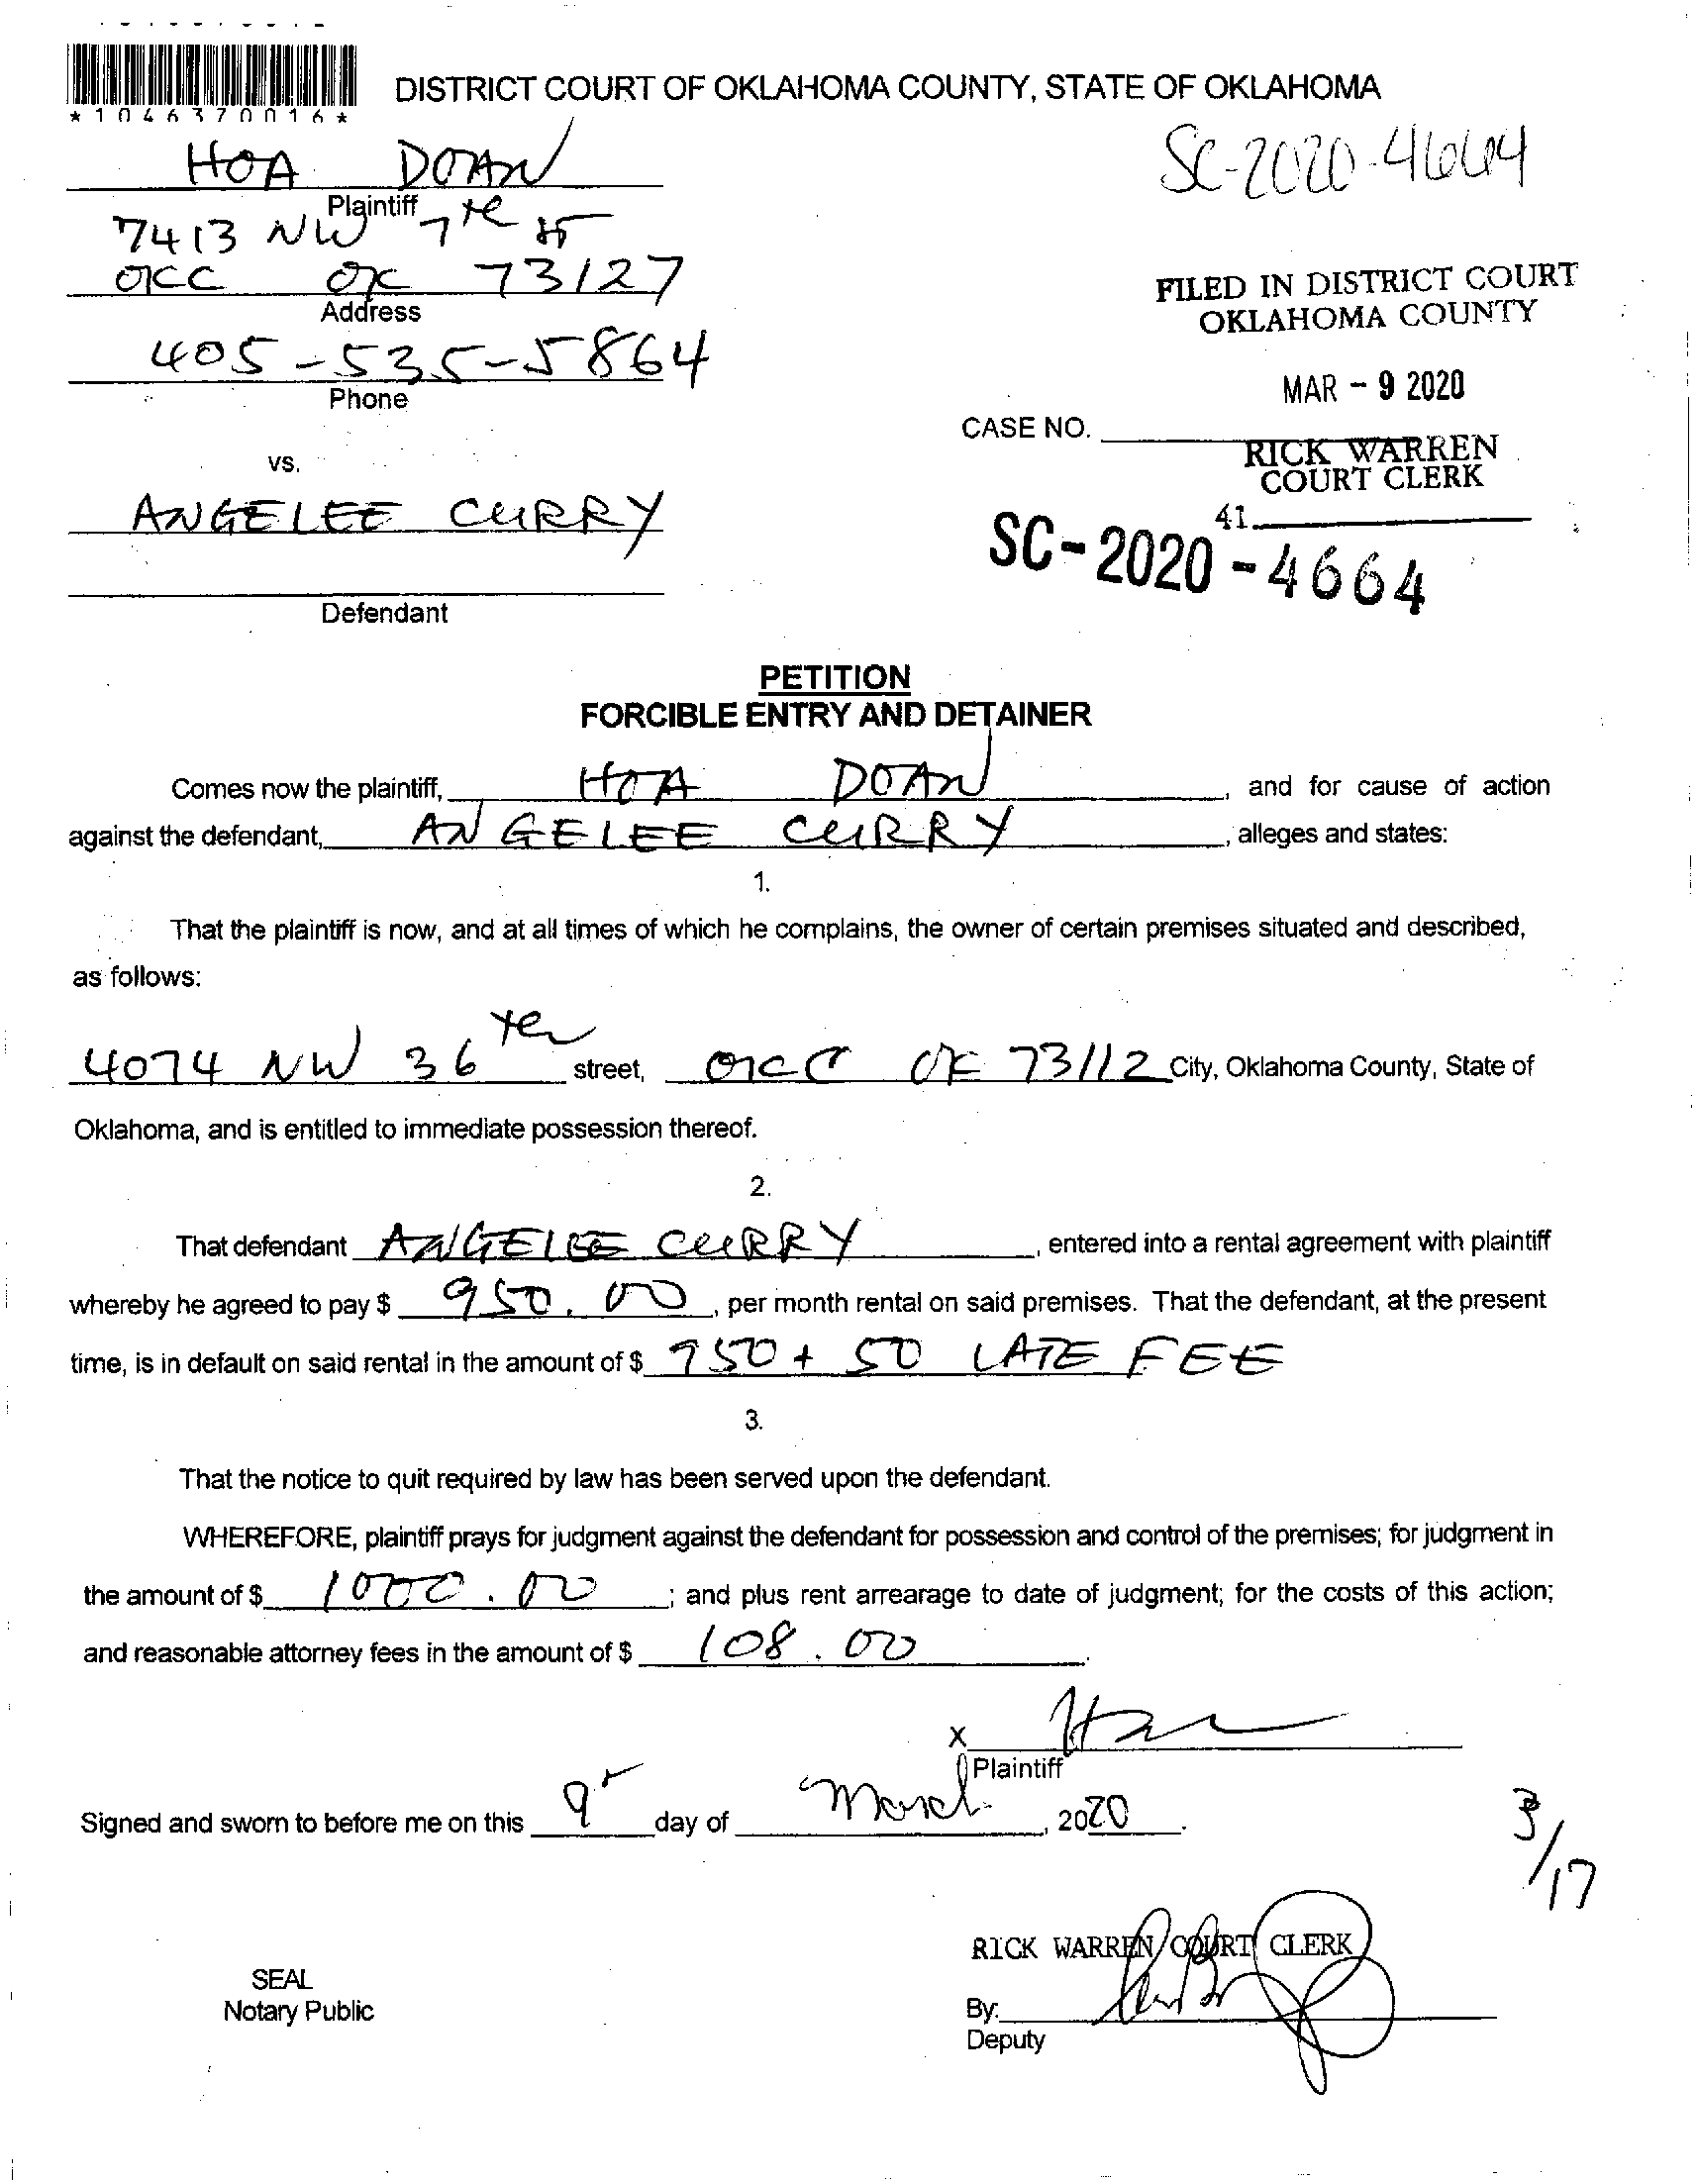 *1046370016*
DISTRICT COURT OF OKLAHOMA COUNTY, STATE OF OKLAHOMA
HOA DOAN
Plaintiff
SC-2020-4664
7413 NW 7th St
OKC OK 73127
Address
405-535-5864
Phone
FILED IN DISTRICT COURT
OKLAHOMA COUNTY
MAR - 9 2020
CASE NO.
RICK WARREN
COURT CLERK
vs.
41
ANGELEE CURRY
SC-2020-4664
Defendant
PETITION
FORCIBLE ENTRY AND DETAINER
Comes now the plaintiff, HOA DOAN, and for cause of action
against the defendant, ANGELEE CURRY, alleges and states:
1.
That the plaintiff is now, and at all times of which he complains, the owner of certain premises situated and described,
as follows:
4074 NW 36th street, OKC OK 73112 City, Oklahoma County, State of
Oklahoma, and is entitled to immediate possession thereof.
2.
That defendant ANGELEE CURRY, entered into a rental agreement with plaintiff
whereby he agreed to pay $ 950.00, per month rental on said premises. That the defendant, at the present
time, is in default on said rental in the amount of $ 950 + 50 LATE FEE
3.
That the notice to quit required by law has been served upon the defendant.
WHEREFORE, plaintiff prays for judgment against the defendant for possession and control of the premises; for judgment in
the amount of $ 1000.00; and plus rent arrearage to date of judgment; for the costs of this action;
and reasonable attorney fees in the amount of $ 108.00.
X
Plaintiff
Signed and sworn to before me on this 9th day of March, 2020.
3/17
RICK WARREN COURT CLERK
SEAL
Notary Public
By:
Deputy